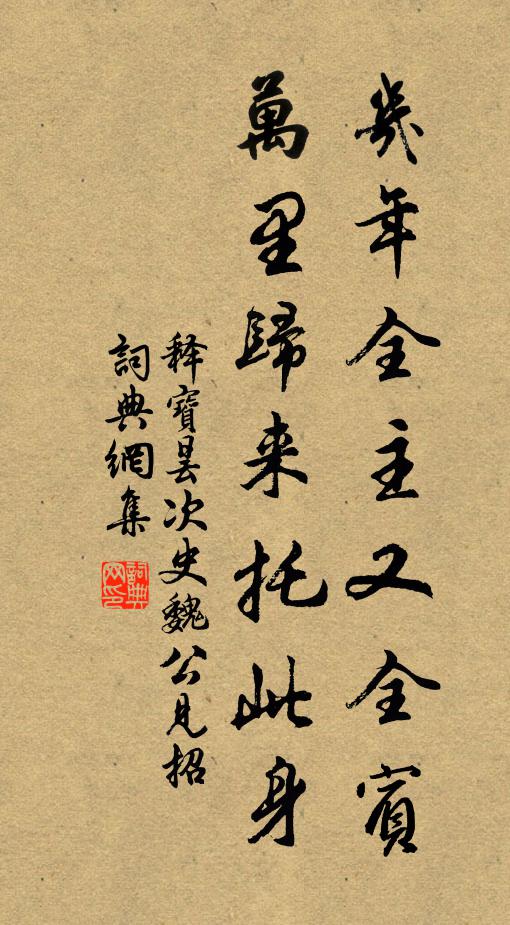 幾年全主又全賓
萬里歸来托此身
释寶曇次史魏公見招
詞典網集
詞典网印